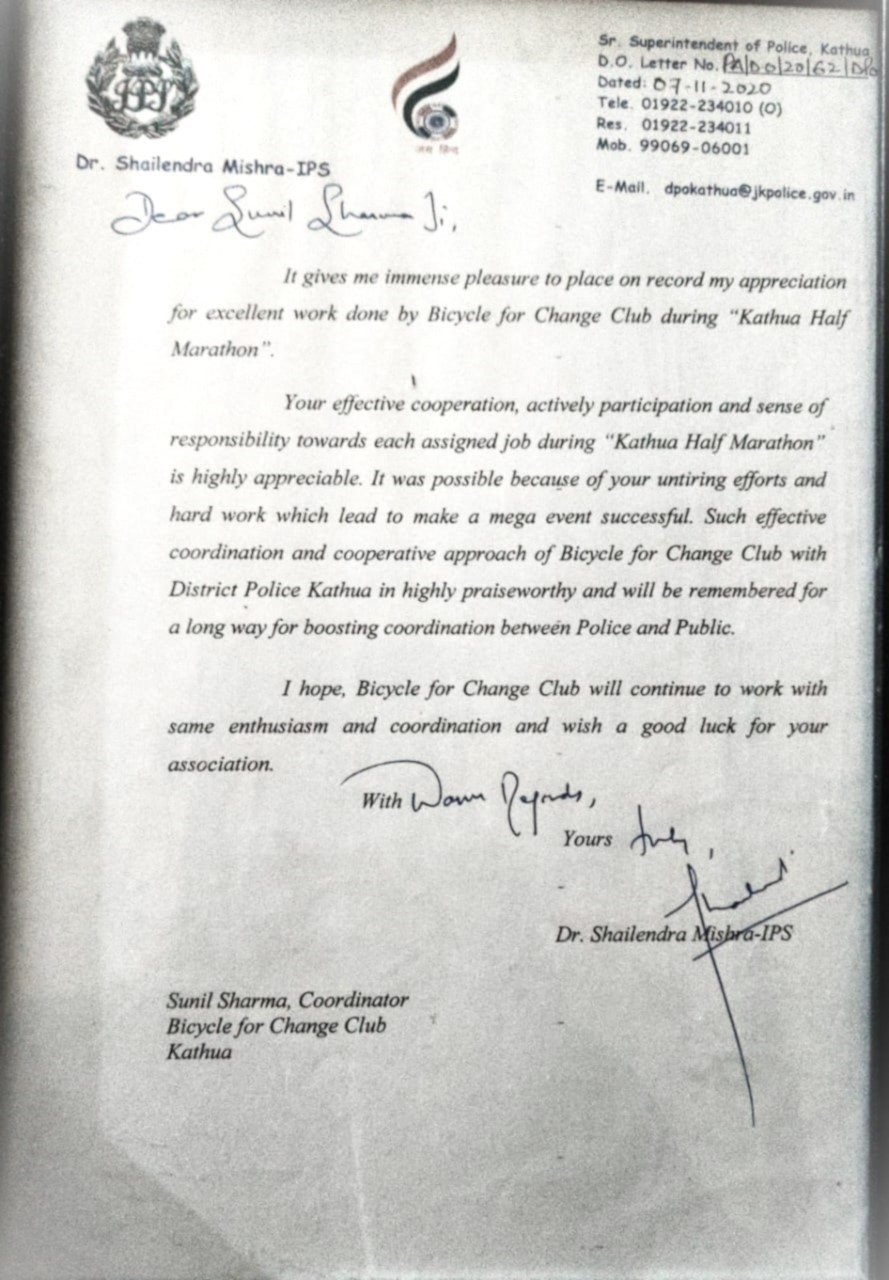 IPS
जय हिन्द
Sr. Superintendent of Police, Kathua
D.O. Letter No. PA/DO/20/62/DPO
Dated: 07-11-2020
Tele. 01922-234010 (O)
Res. 01922-234011
Mob. 99069-06001
E-Mail. dpokathua@jkpolice.gov.in
Dr. Shailendra Mishra-IPS
Dear Sunil Sharma Ji,
It gives me immense pleasure to place on record my appreciation
for excellent work done by Bicycle for Change Club during "Kathua Half
Marathon".
Your effective cooperation, actively participation and sense of
responsibility towards each assigned job during "Kathua Half Marathon"
is highly appreciable. It was possible because of your untiring efforts and
hard work which lead to make a mega event successful. Such effective
coordination and cooperative approach of Bicycle for Change Club with
District Police Kathua in highly praiseworthy and will be remembered for
a long way for boosting coordination between Police and Public.
I hope, Bicycle for Change Club will continue to work with
same enthusiasm and coordination and wish a good luck for your
association.
With Warm Regards,
Yours truly,
Dr. Shailendra Mishra-IPS
Sunil Sharma, Coordinator
Bicycle for Change Club
Kathua